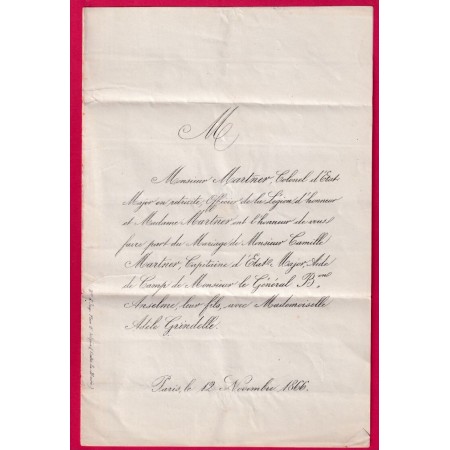 M
Monsieur Martner, Colonel d'Etat
Major en retraite, Officier de la Légion d'honneur
et Madame Martner ont l'honneur de vous
faire part du Mariage de Monsieur Camille
Martner, Capitaine d'Etat-Major, Aide
de Camp de Monsieur le Général Bon
Anselme, leur fils, avec Mademoiselle
Adèle Grindelle.
Paris, le 12 Novembre 1866.